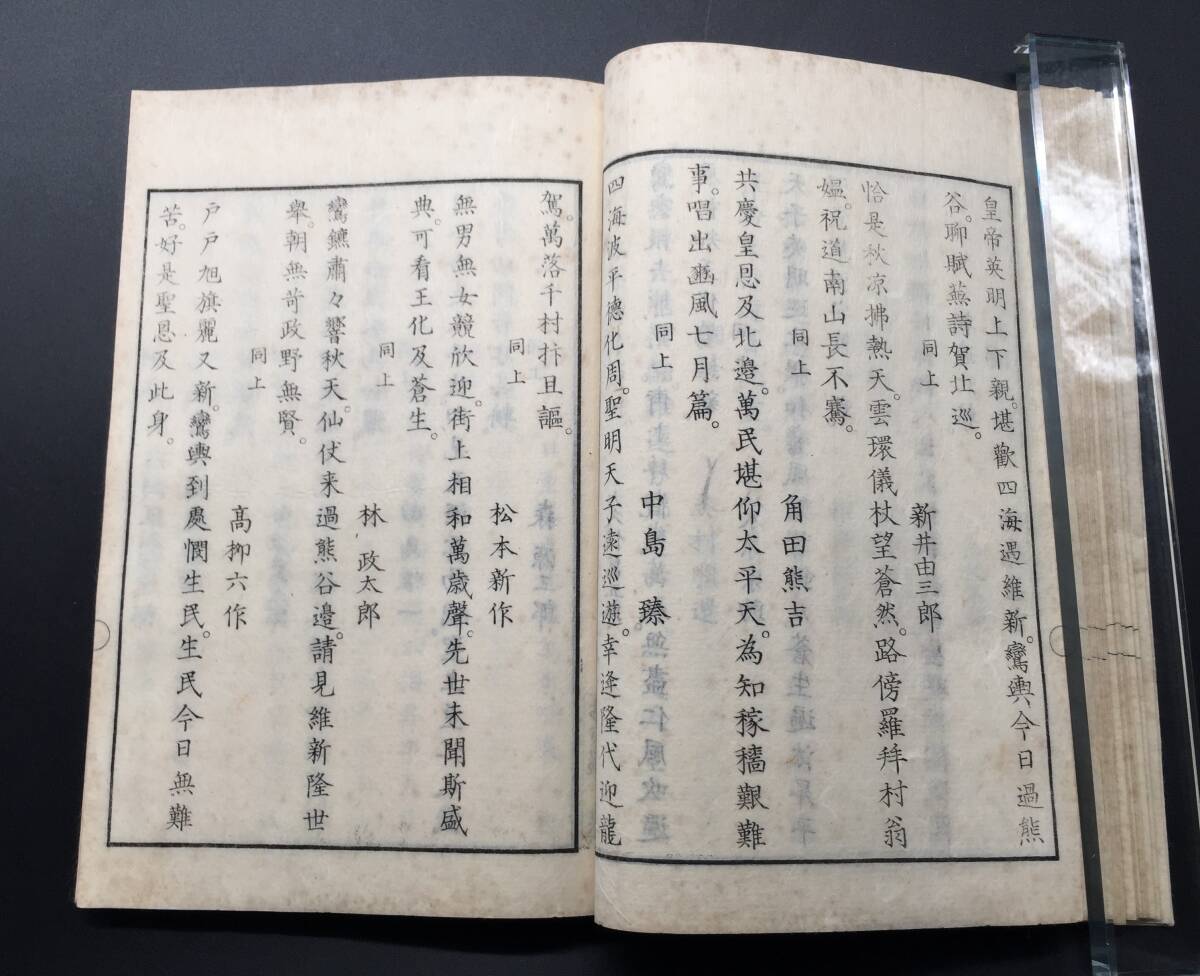 皇帝英明上下親。堪歡四海遇維新。鸞輿今日過熊
谷。聊賦蕪詩賀北巡。
同上 新井由三郎
恰是秋凉拂熱天。雲環儀杖望蒼然。路傍羅拜村翁
媼。祝道南山長不騫。
同上 角田熊吉
共慶皇恩及北邉。萬民堪仰太平天。為知稼穡艱難
事。唱出豳風七月篇。
同上 中島臻
四海波平德化周。聖明天子遠巡遊。幸逢隆代迎龍
駕。萬落千村抃且謳。
同上 松本新作
無男無女競欣迎。街上相和萬歳聲。先世未聞斯盛
典。可看王化及蒼生。
同上 林政太郎
鸞鑣肅々響秋天。仙仗来過熊谷邉。請見維新隆世
舉。朝無苛政野無賢。
同上 高柳六作
戸戸旭旗麗又新。鸞輿到處憫生民。生民今日無難
苦。好是聖恩及此身。